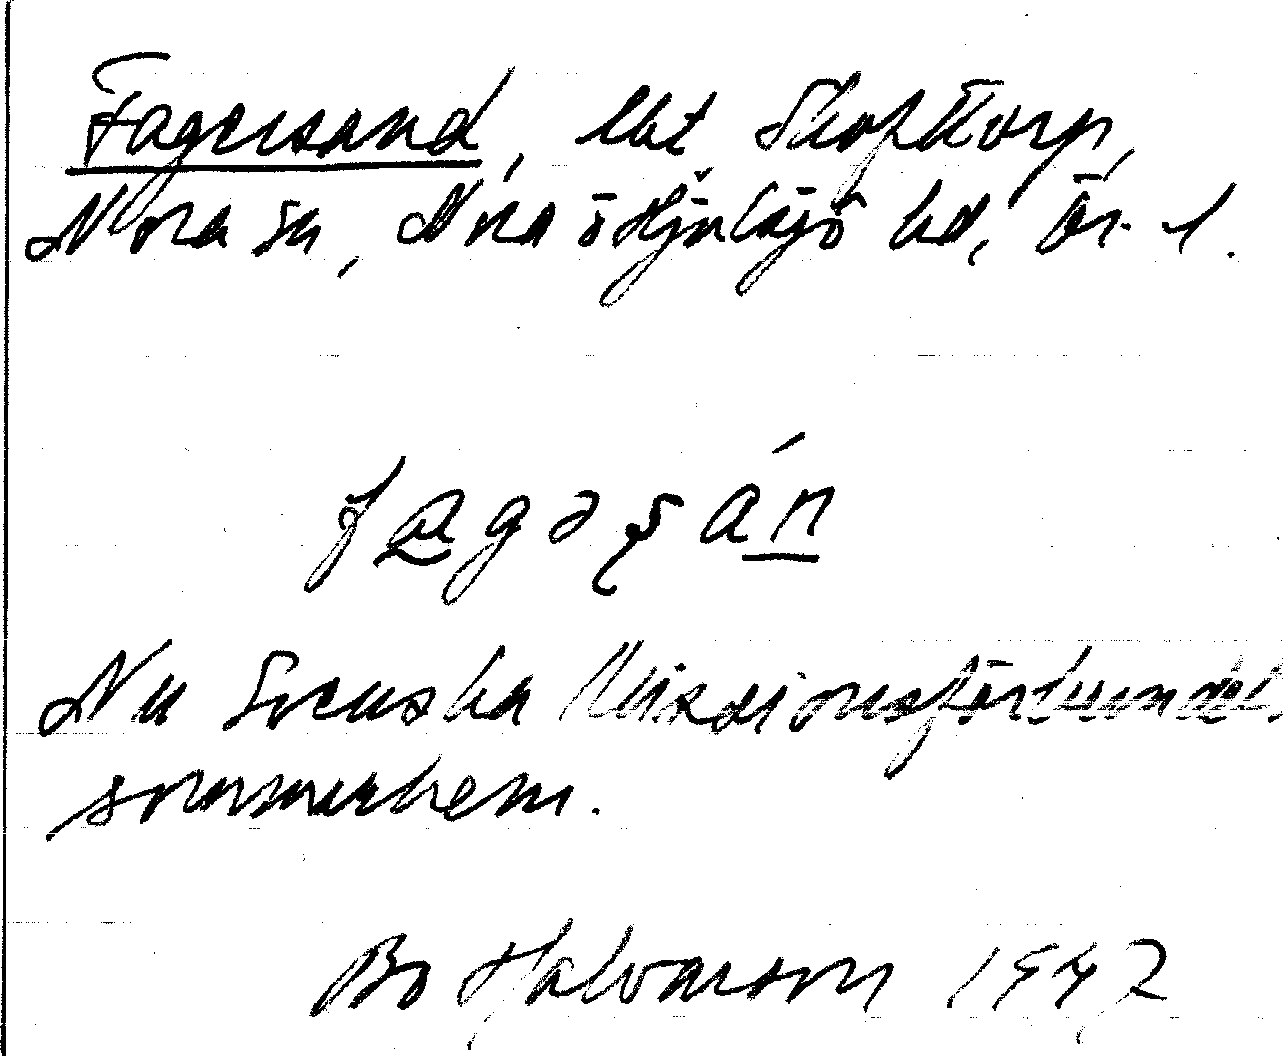 Fagersand, lht Skoftorp,
Nora sn, Nora o Hjulsjö bd, Ör. l.
fagəṣán
Nu Svenska Missionsförbundets
sommarhem.
Bo Halvarson 1947